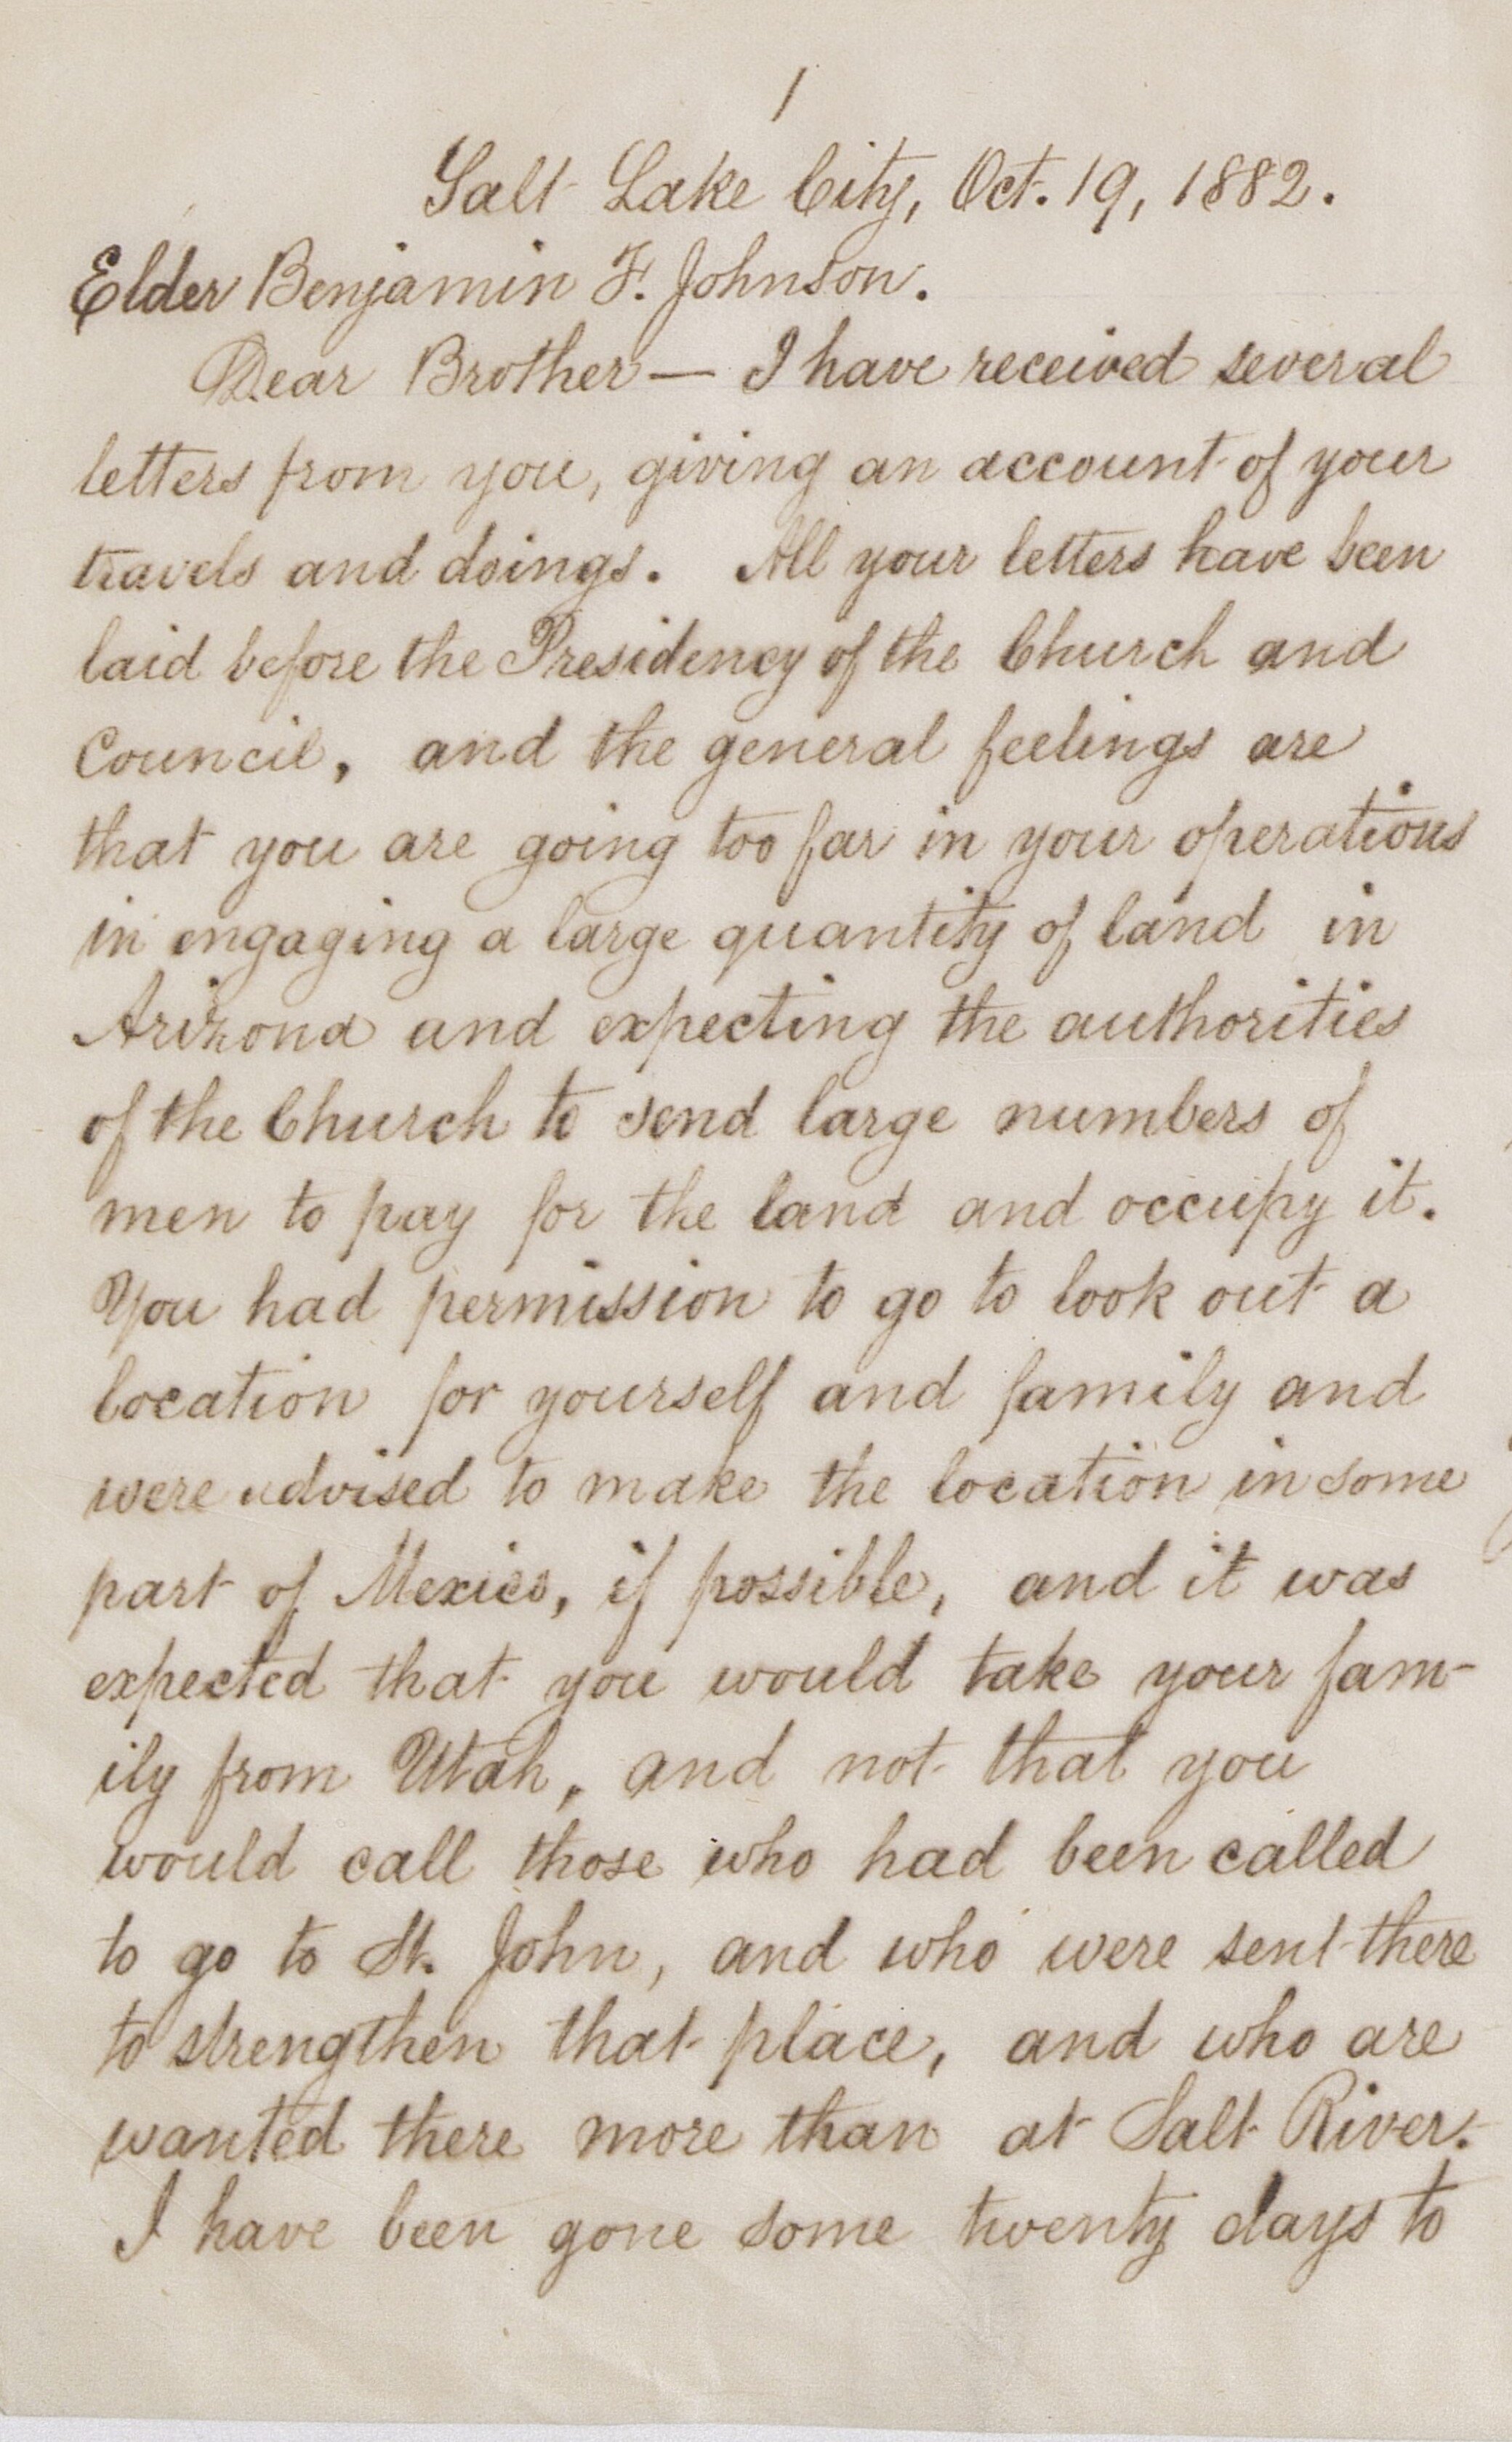 1
Salt Lake City, Oct. 19, 1882.
Elder Benjamin F. Johnson.
Dear Brother — I have received several
letters from you, giving an account of your
travels and doings. All your letters have been
laid before the Presidency of the Church and
Council, and the general feelings are
that you are going too far in your operations
in engaging a large quantity of land in
Arizona and expecting the authorities
of the Church to send large numbers of
men to pay for the land and occupy it.
You had permission to go to look out a
location for yourself and family and
were advised to make the location in some
part of Mexico, if possible, and it was
expected that you would take your fam-
ily from Utah, and not that you
would call those who had been called
to go to St. John, and who were sent there
to strengthen that place, and who are
wanted there more than at Salt River.
I have been gone some twenty days to